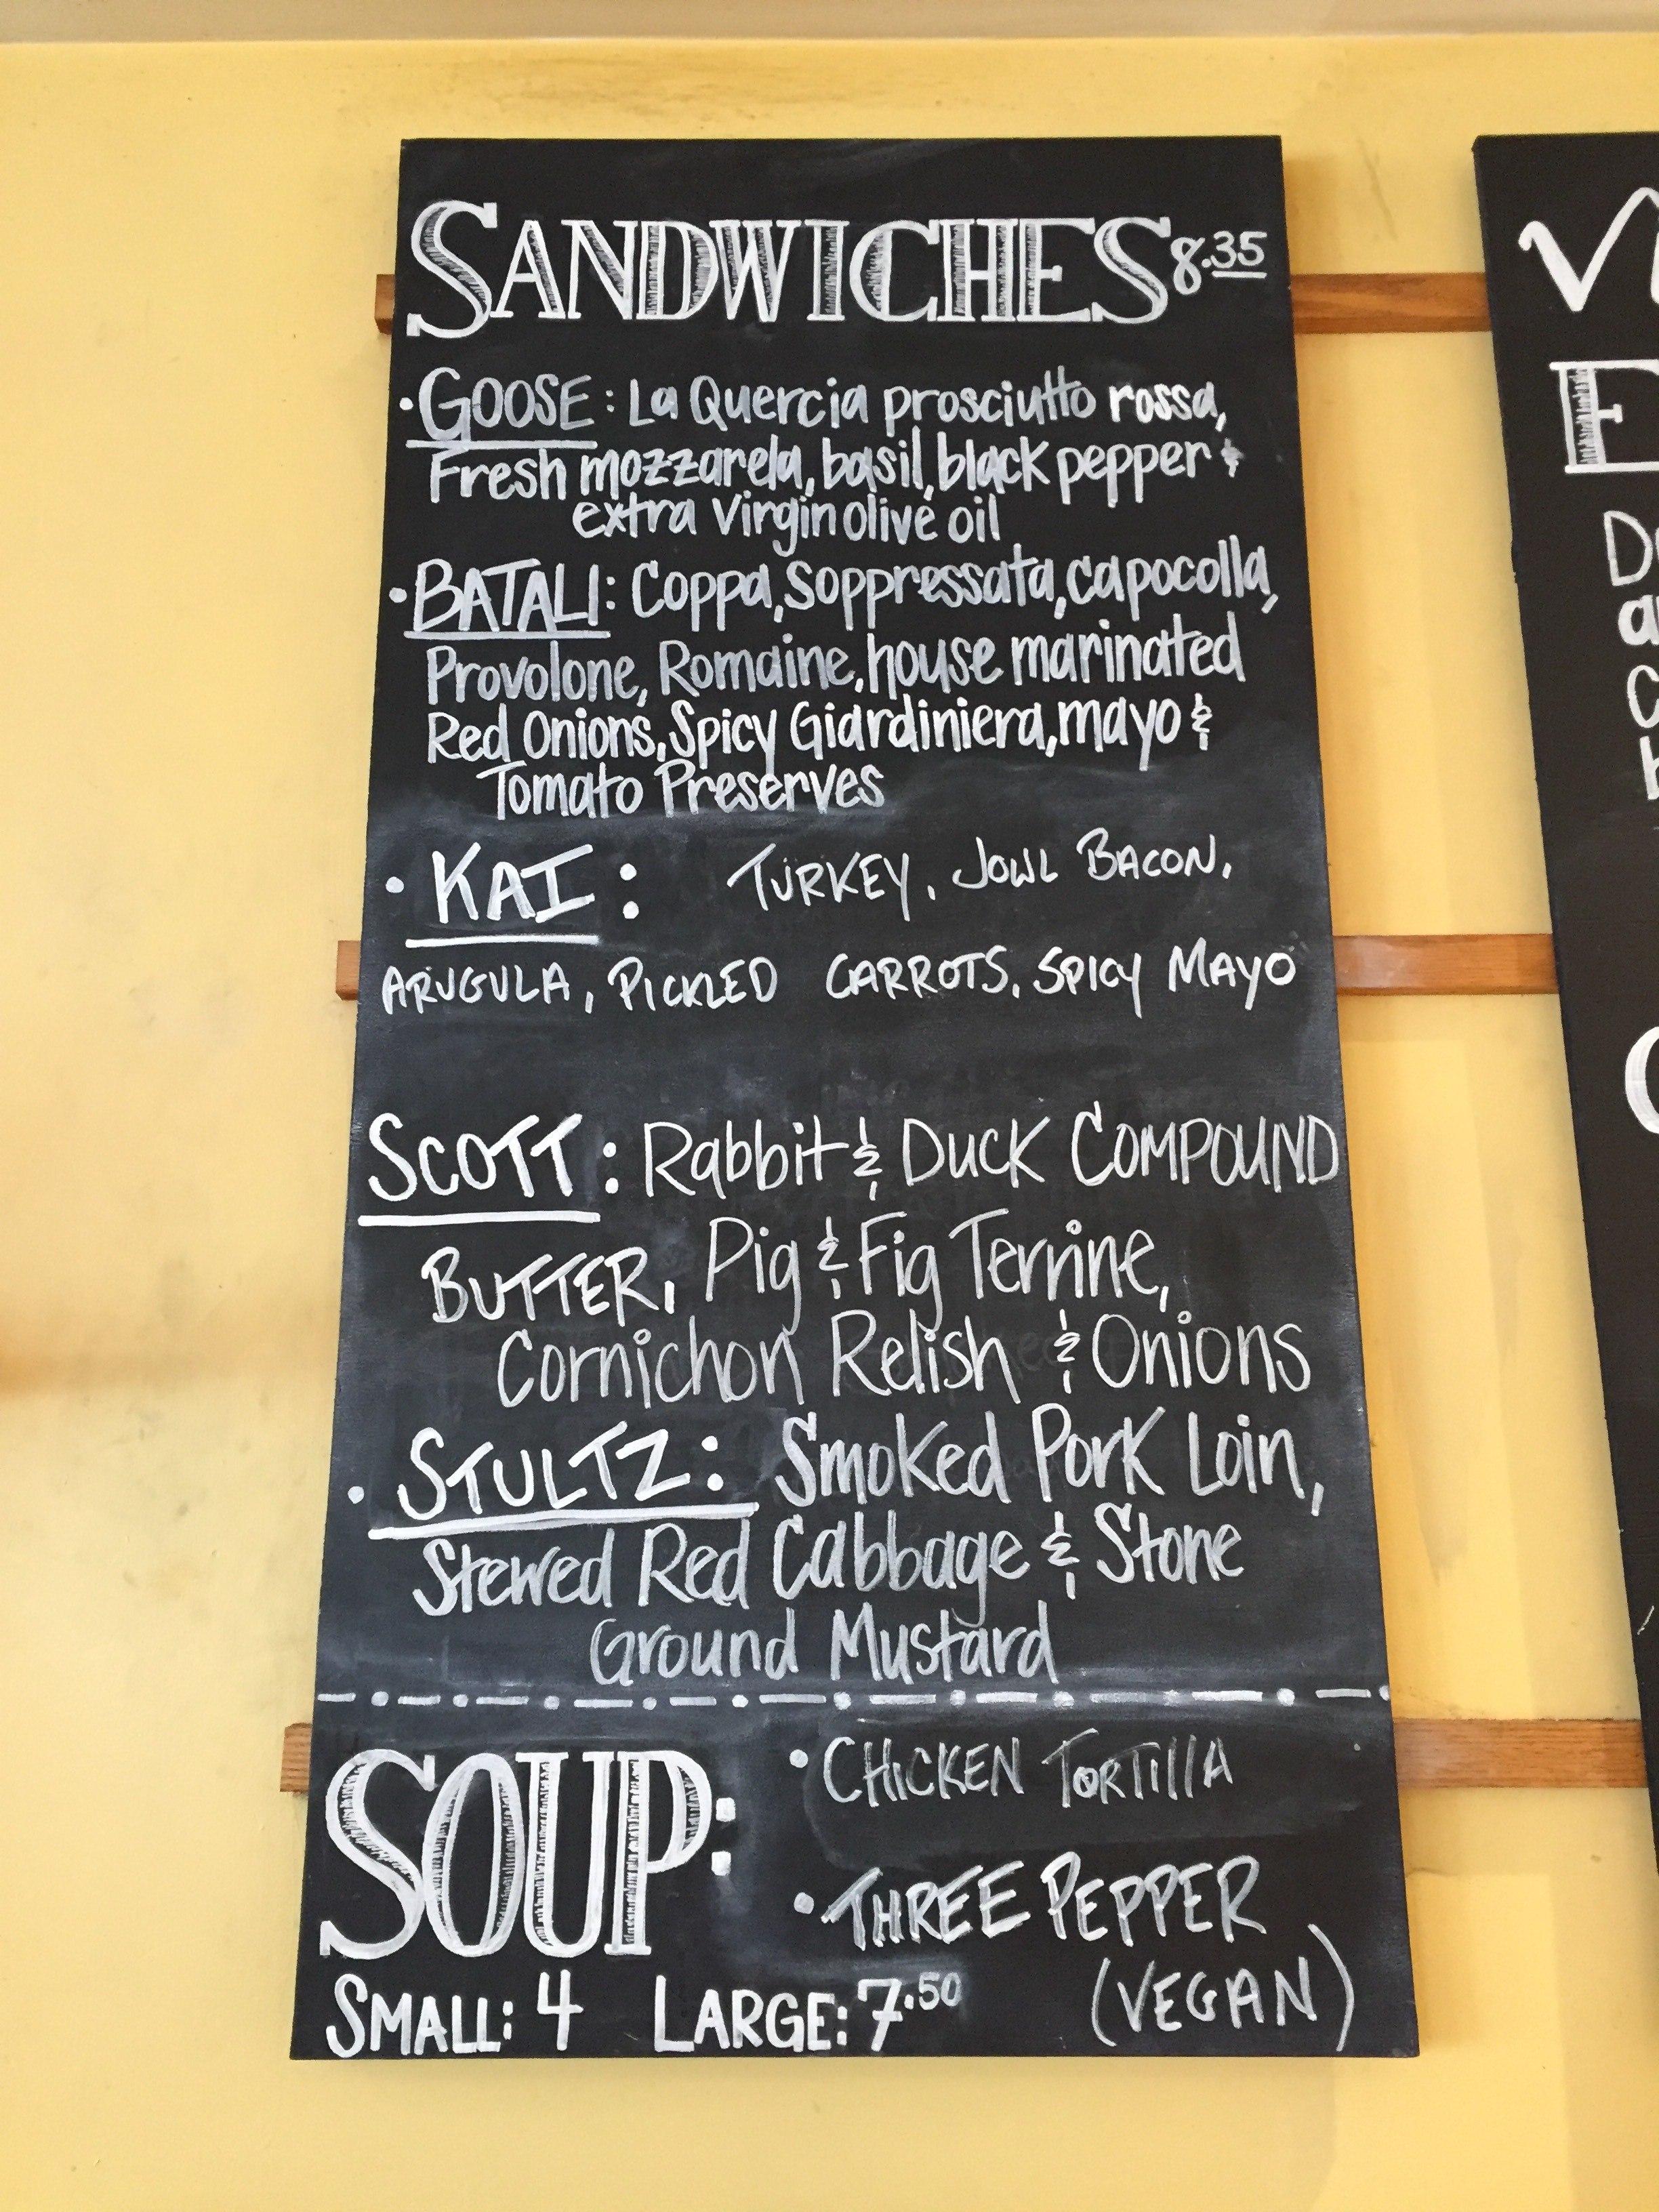 SANDWICHES 8.35
• GOOSE: La Quercia prosciutto rossa,
Fresh mozzarela, basil, black pepper &
extra virgin olive oil
• BATALI: Coppa, Soppressata, capocolla,
Provolone, Romaine, house marinated
Red Onions, Spicy Giardiniera, mayo &
Tomato Preserves
• KAI: TURKEY, JOWL BACON,
ARUGULA, PICKLED CARROTS, SPICY MAYO
SCOTT: Rabbit & DUCK COMPOUND
BUTTER, Pig & Fig Terrine,
Cornichon Relish & Onions
• STULTZ: Smoked Pork Loin,
Stewed Red Cabbage & Stone
Ground Mustard
SOUP:
• CHICKEN TORTILLA
• THREE PEPPER
(VEGAN)
SMALL: 4 LARGE: 7.50